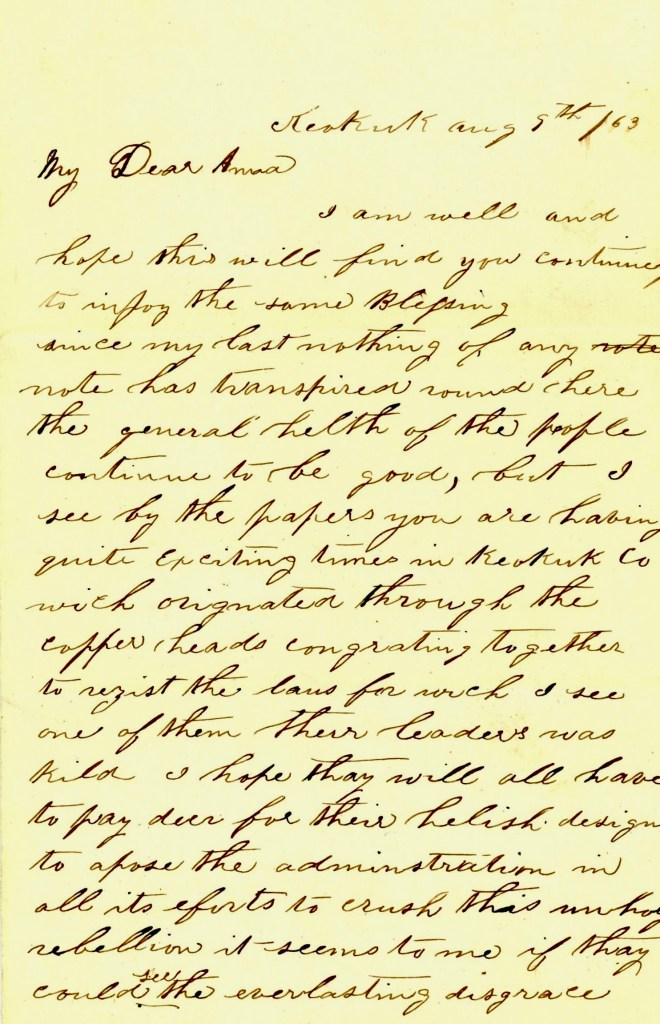 Keokuk aug 9th /63
My Dear Amaa
I am well and
hope this will find you continuey
to injoy the same Blessing
since my last nothing of any note
note has transpired round here
the general helth of the people
continue to be good, but I
see by the papers you are having
quite exciting times in Keokuk Co
wich orignated through the
copper heads congrating together
to rezist the laws for wich I see
one of them their leaders was
kild I hope thay will all have
to pay deer for their helish design
to apose the adminstration in
all its eforts to crush this unhoy
rebellion it seems to me if thay
could see the everlasting disgrace